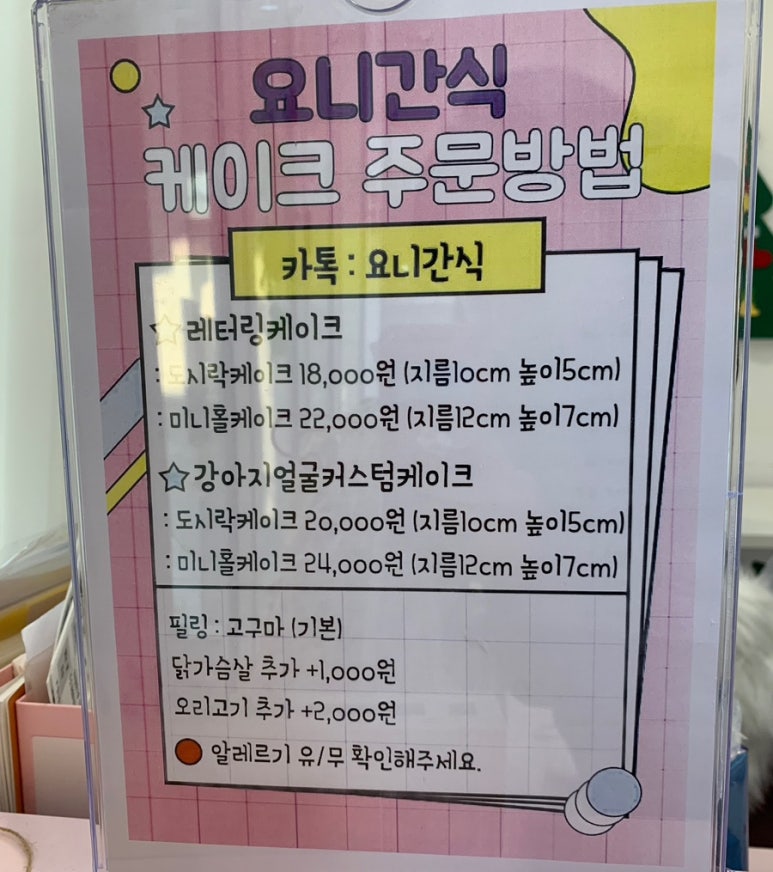 요니간식
케이크 주문방법
카톡 : 요니간식
레터링케이크
: 도시락케이크 18,000원 (지름10cm 높이5cm)
: 미니홀케이크 22,000원 (지름12cm 높이7cm)
강아지얼굴커스텀케이크
: 도시락케이크 20,000원 (지름10cm 높이5cm)
: 미니홀케이크 24,000원 (지름12cm 높이7cm)
필링 : 고구마 (기본)
닭가슴살 추가 +1,000원
오리고기 추가 +2,000원
알레르기 유/무 확인해주세요.